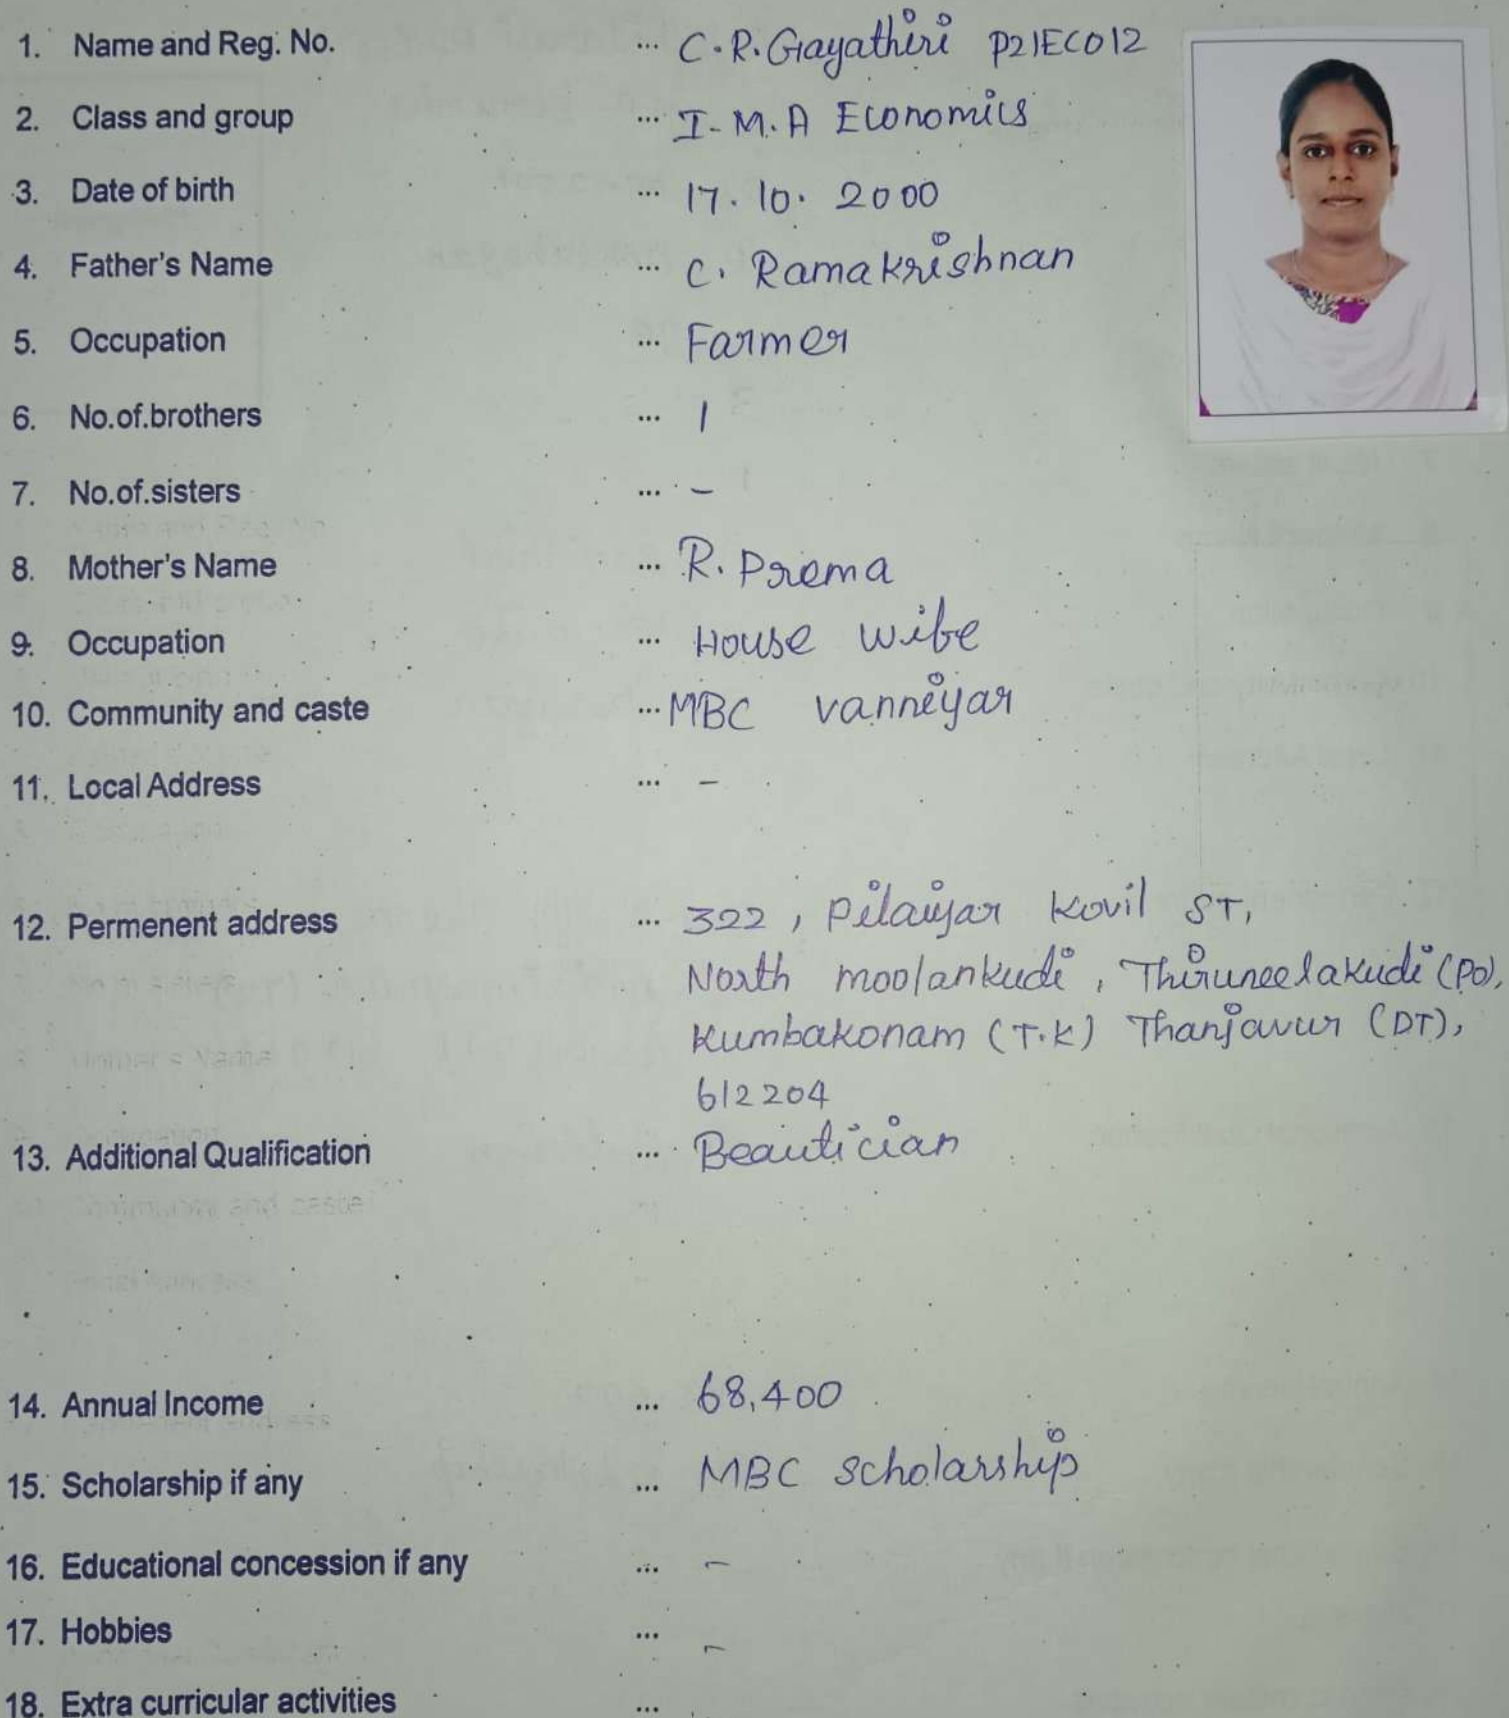 1. Name and Reg. No. ... C.R. Gayathiri P21ECO12
2. Class and group ... I-M.A Economics
3. Date of birth ... 17.10.2000
4. Father's Name ... C. Ramakrishnan
5. Occupation ... Farmer
6. No.of.brothers ... 1
7. No.of.sisters ... -
8. Mother's Name ... R. Prema
9. Occupation ... House wife
10. Community and caste ... MBC vanniyar
11. Local Address ... -
12. Permenent address ... 322, Pilaiyar Kovil ST,
North moolankudi, Thiruneelakudi (PO),
Kumbakonam (T.K) Thanjavur (DT),
612204
13. Additional Qualification ... Beautician
14. Annual Income ... 68,400
15. Scholarship if any ... MBC scholarship
16. Educational concession if any ... -
17. Hobbies ... -
18. Extra curricular activities ...